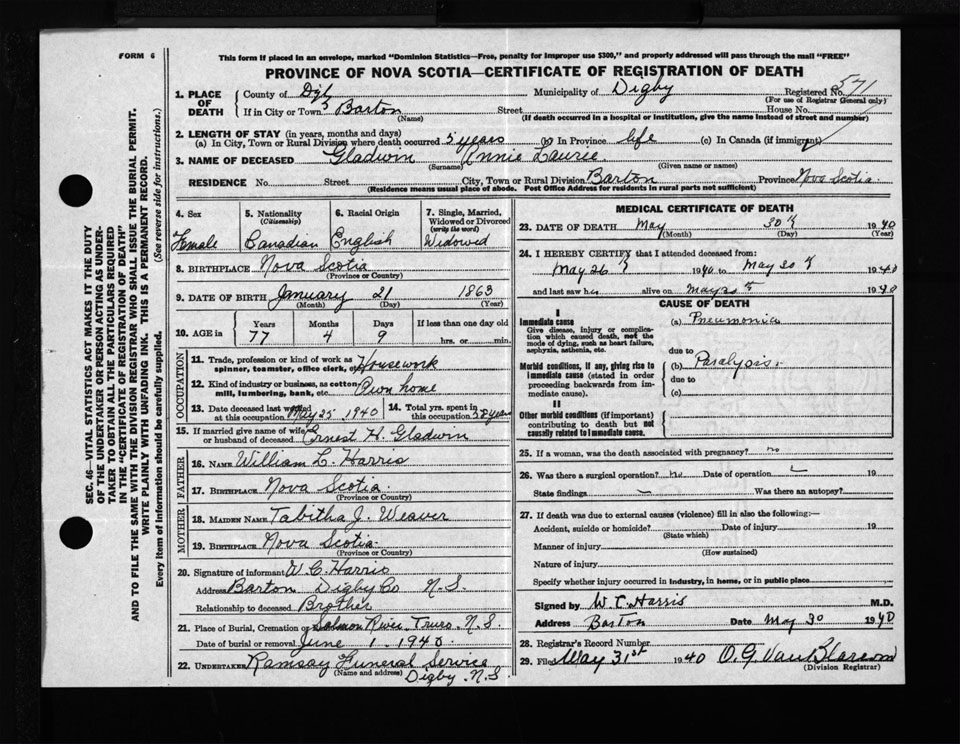 FORM 6
This form if placed in an envelope, marked "Dominion Statistics—Free, penalty for improper use $300," and properly addressed will pass through the mail "FREE"
PROVINCE OF NOVA SCOTIA—CERTIFICATE OF REGISTRATION OF DEATH
1. PLACE OF DEATH
County of Digby Municipality of Digby Registered No. 571
(For use of Registrar General only)
If in City or Town Barton Street House No.
(Name) (If death occurred in a hospital or institution, give the name instead of street and number)
2. LENGTH OF STAY (in years, months and days)
(a) In City, Town or Rural Division where death occurred 5 years (b) In Province life (c) In Canada (if immigrant)
3. NAME OF DECEASED Gladwin Annie Laurie
(Surname) (Given name or names)
RESIDENCE No. Street City, Town or Rural Division Barton Province Nova Scotia
(Residence means usual place of abode. Post Office Address for residents in rural parts not sufficient)
4. Sex
Female
5. Nationality
(Citizenship)
Canadian
6. Racial Origin
English
7. Single, Married, Widowed or Divorced
(write the word)
Widowed
8. BIRTHPLACE Nova Scotia
(Province or Country)
9. DATE OF BIRTH January 21 1863
(Month) (Day) (Year)
10. AGE in
Years Months Days If less than one day old
77 4 9 hrs. or min.
OCCUPATION
11. Trade, profession or kind of work as spinner, teamster, office clerk, etc. Housework
12. Kind of industry or business, as cotton mill, lumbering, bank, etc. Own home
13. Date deceased last worked at this occupation May 25, 1940
14. Total yrs. spent in this occupation 58 years
15. If married give name of wife or husband of deceased Ernest H. Gladwin
FATHER
16. NAME William L. Harris
17. BIRTHPLACE Nova Scotia
MOTHER
18. MAIDEN NAME Tabitha J. Weaver
19. BIRTHPLACE Nova Scotia
(Province or Country)
20. Signature of informant W. C. Harris
Address Barton Digby Co N.S.
Relationship to deceased Brother
21. Place of Burial, Cremation or Salmon River Truro. N.S
Date of burial or removal June 1 1940.
22. UNDERTAKER Ramsay Funeral Service
(Name and address) Digby. N.S
MEDICAL CERTIFICATE OF DEATH
23. DATE OF DEATH May 30 1940
(Month) (Day) (Year)
24. I HEREBY CERTIFY that I attended deceased from:
May 26 1940 to May 30 1940
and last saw her alive on May 1940
CAUSE OF DEATH
I
Immediate cause (a) Pneumonia
Give disease, injury or complication which caused death, not the mode of dying, such as heart failure, asphyxia, asthenia, etc.
due to
Morbid conditions, if any, giving rise to immediate cause (stated in order proceeding backwards from immediate cause).
(b) Paralysis.
due to
(c)
II
Other morbid conditions (if important) contributing to death but not causally related to immediate cause.
25. If a woman, was the death associated with pregnancy? no
26. Was there a surgical operation? no Date of operation 19
State findings Was there an autopsy?
27. If death was due to external causes (violence) fill in also the following:—
Accident, suicide or homicide? Date of injury 19
(State which)
Manner of injury
(How sustained)
Nature of injury
Specify whether injury occurred in industry, in home, or in public place
Signed by W. C. Harris M.D.
Address Barton Date May 30 1940
28. Registrar's Record Number
29. Filed May 31st 1940 O. G. VanBlarcom
(Division Registrar)
SEC. 46—VITAL STATISTICS ACT MAKES IT THE DUTY
OF THE UNDERTAKER OR PERSON ACTING AS UNDER-
TAKER TO OBTAIN ALL THE PARTICULARS REQUIRED
IN THE "CERTIFICATE OF REGISTRATION OF DEATH"
AND TO FILE THE SAME WITH THE DIVISION REGISTRAR WHO SHALL ISSUE THE BURIAL PERMIT.
WRITE PLAINLY WITH UNFADING INK. THIS IS A PERMANENT RECORD.
Every item of information should be carefully supplied. (See reverse side for instructions.)